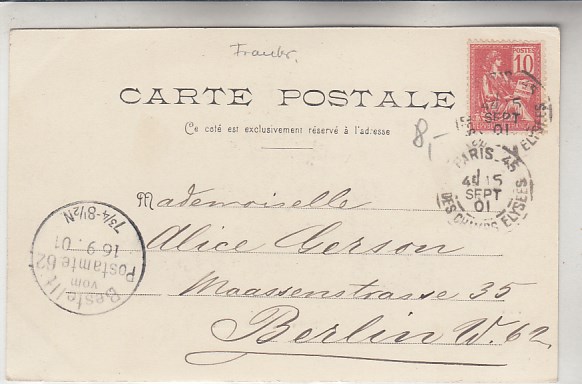 Frankr.
POSTES
10
CARTE POSTALE
Ce coté est exclusivement réservé à l'adresse
8,-
SEPT
01
ELYSEES
PARIS-45
15
SEPT
01
DES CHAMPS ELYSEES
Mademoiselle
Alice Gerson
Maassenstrasse 35
Berlin W. 62.
Bestellt
vom
Postamte 62
16.9.01
7 3/4-8 1/2 N